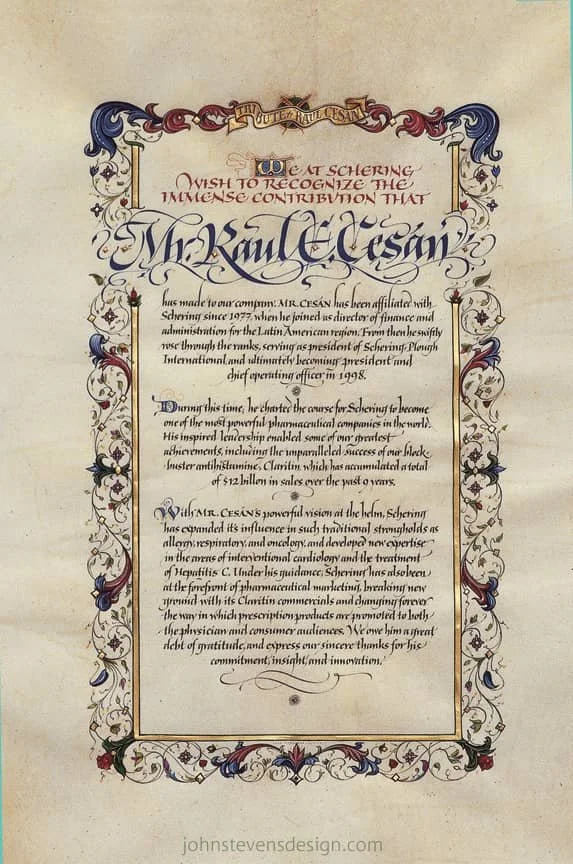 TRIBUTE to RAUL CESÁN
WE AT SCHERING
WISH TO RECOGNIZE THE
IMMENSE CONTRIBUTION THAT
Mr. Raul E. Cesán
has made to our company. MR. CESÁN has been affiliated with
Schering since 1977, when he joined as director of finance and
administration for the Latin American region. From then he swiftly
rose through the ranks, serving as president of Schering-Plough
International, and ultimately becoming president and
chief operating officer in 1998.
During this time, he charted the course for Schering to become
one of the most powerful pharmaceutical companies in the world.
His inspired leadership enabled some of our greatest
achievements, including the unparalleled success of our block-
buster antihistamine, Claritin, which has accumulated a total
of $12 billion in sales over the past 9 years.
With MR. CESÁN'S powerful vision at the helm, Schering
has expanded its influence in such traditional strongholds as
allergy, respiratory, and oncology, and developed new expertise
in the areas of interventional cardiology and the treatment
of Hepatitis C. Under his guidance, Schering has also been
at the forefront of pharmaceutical marketing, breaking new
ground with its Claritin commercials and changing forever
the way in which prescription products are promoted to both
the physician and consumer audiences. We owe him a great
debt of gratitude, and express our sincere thanks for his
commitment, insight, and innovation.
johnstevensdesign.com